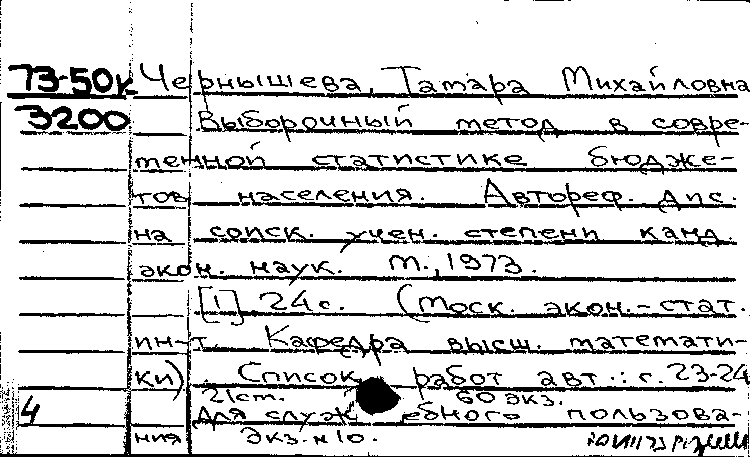 73-50к Чернышева, Тамара Михайловна
3200 Выборочный метод в совре-
менной статистике бюдже-
тов населения. Автореф. дис.
на соиск. учен. степени канд.
экон. наук. М., 1973.
[1], 24 с. (Моск. экон.-стат.
ин-т. Кафедра высш. математи-
ки). Список работ авт.: с. 23-24
21 см. 60 экз.
4 Для служебного пользова-
ния Экз. н 10.